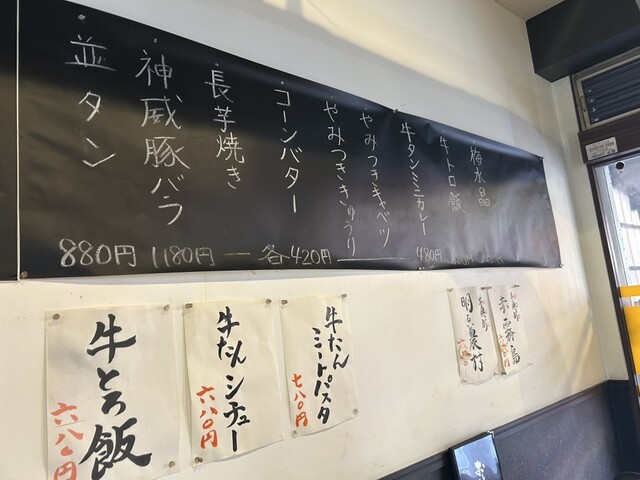 梅水晶
牛トロ飯
牛タンミニカレー
やみつきキャベツ
やみつききゅうり
コーンバター
長芋焼き
神威豚バラ
並タン
880円 1180円 ― 各420円 ― 480円
赤霧島
明るい農村
牛たん
ミートパスタ
七八〇円
牛たんシチュー
六八〇円
牛とろ飯
六八〇円